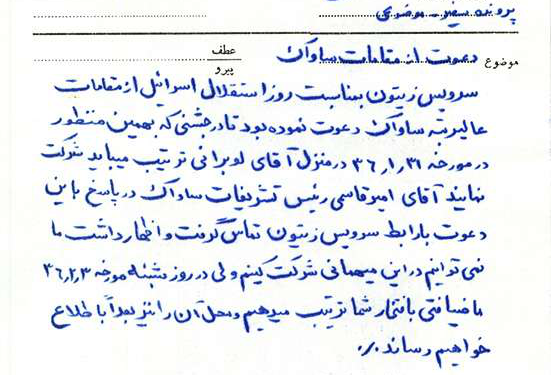 پرونده سفید - موضوعی
موضوع دعوت از مقامات ساواک
عطف
پیرو
سرویس زیتون بمناسبت روز استقلال اسرائیل از مقامات
عالیرتبه ساواک دعوت نموده بود تا در جشنی که بهمین منظور
در مورخه ۳۶٫۱٫۳۱ در منزل آقای لوبرانی ترتیب میباید شرکت
نمایند آقای امیرقاسمی رئیس تشریفات ساواک در پاسخ باین
دعوت با رابط سرویس زیتون تماس گرفت و اظهار داشت ما
نمی توانیم در این میهمانی شرکت کنیم ولی در روز شنبه مورخه ۳۶٫۲٫۳
ما ضیافتی بافتخار شما ترتیب میدهیم و محل آن را نیز بعداً باطلاع
خواهیم رساند ./.